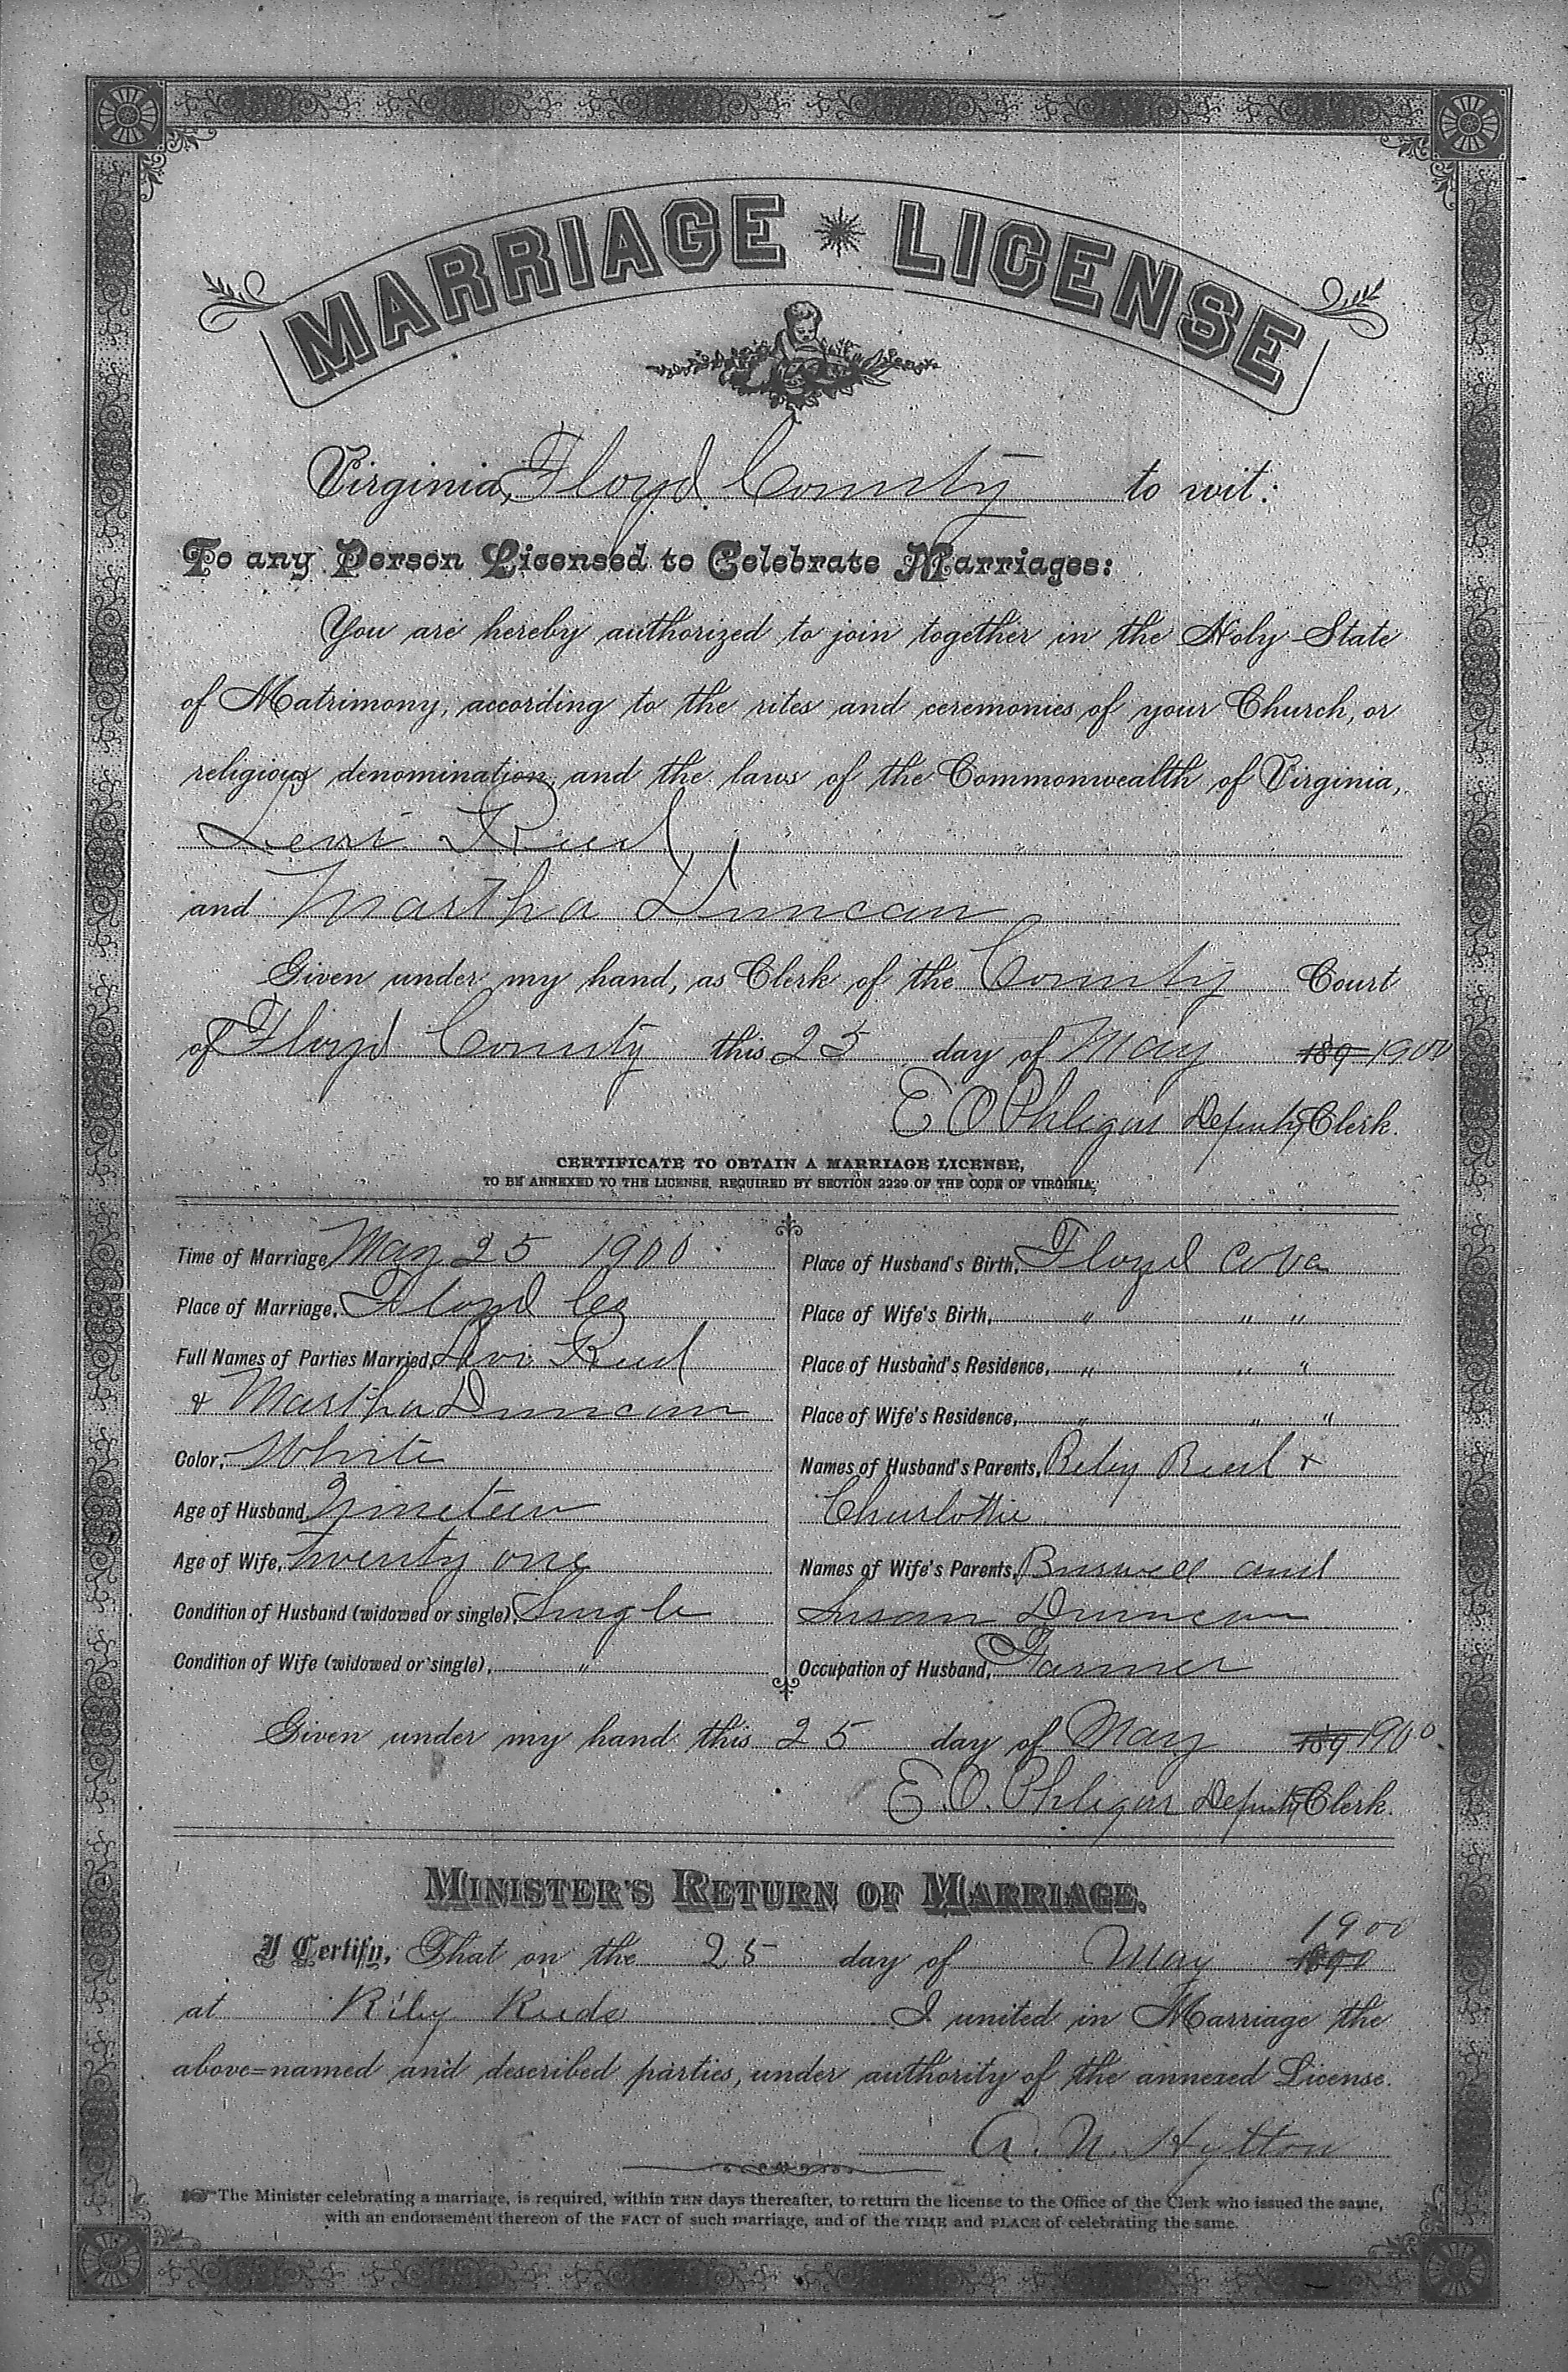 MARRIAGE LICENSE
Virginia, Floyd County to wit:
To any Person Licensed to Celebrate Marriages:
You are hereby authorized to join together in the Holy State
of Matrimony, according to the rites and ceremonies of your Church, or
religious denomination, and the laws of the Commonwealth of Virginia,
Levi Reed
and Martha Duncan
Given under my hand, as Clerk of the County Court
of Floyd County this 25 day of May 189 1900
E O Phlegar Deputy Clerk.
CERTIFICATE TO OBTAIN A MARRIAGE LICENSE,
TO BE ANNEXED TO THE LICENSE, REQUIRED BY SECTION 2229 OF THE CODE OF VIRGINIA.
Time of Marriage, May 25 1900
Place of Marriage, Floyd Co
Full Names of Parties Married, Levi Reed
& Martha Duncan
Color, White
Age of Husband, Nineteen
Age of Wife, Twenty one
Condition of Husband (widowed or single), Single
Condition of Wife (widowed or single), "
Place of Husband's Birth, Floyd Co Va
Place of Wife's Birth, " " "
Place of Husband's Residence, " " "
Place of Wife's Residence, " " "
Names of Husband's Parents, Riley Reed &
Charlottie
Names of Wife's Parents, Burwell and
Susan Duncan
Occupation of Husband, Farmer
Given under my hand this 25 day of May 189 1900
E. O. Phlegar Deputy Clerk.
MINISTER'S RETURN OF MARRIAGE.
I Certify, That on the 25 day of May 1890 1900
at Riley Reeds I united in Marriage the
above-named and described parties, under authority of the annexed License.
A. N. Hylton
The Minister celebrating a marriage, is required, within TEN days thereafter, to return the license to the Office of the Clerk who issued the same,
with an endorsement thereof of the FACT of such marriage, and of the TIME and PLACE of celebrating the same.